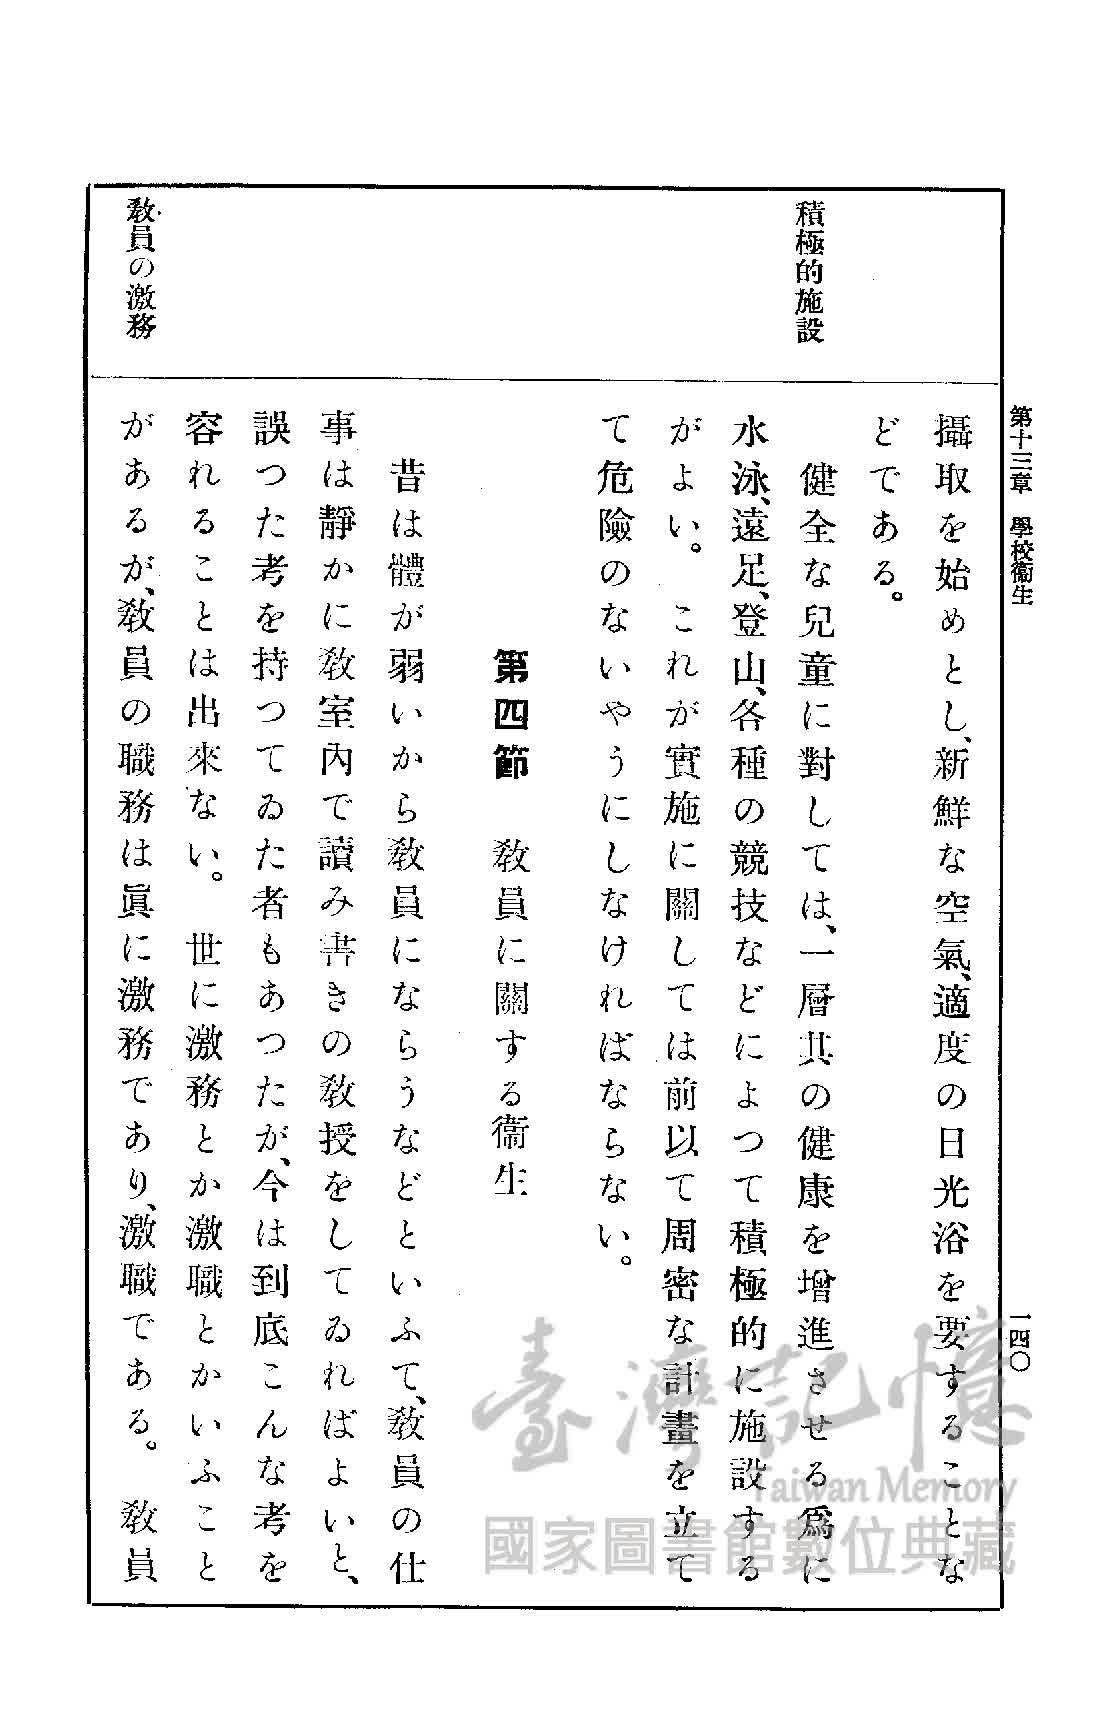 第十三章　學校衞生
一四〇
積極的施設
敎員の激務
攝取を始めとし、新鮮な空氣、適度の日光浴を要することな
どである。
健全な兒童に對しては、一層其の健康を增進させる爲に
水泳、遠足、登山、各種の競技などによつて積極的に施設する
がよい。これが實施に關しては前以て周密な計畫を立て
て危險のないやうにしなければならない。
第四節　敎員に關する衞生
昔は體が弱いから敎員にならうなどといふて、敎員の仕
事は靜かに敎室內で讀み書きの敎授をしてゐればよいと、
誤つた考を持つてゐた者もあつたが、今は到底こんな考を
容れることは出來ない。世に激務とか激職とかいふこと
があるが、敎員の職務は眞に激務であり、激職である。敎員
臺灣記憶
Taiwan Memory
國家圖書館數位典藏